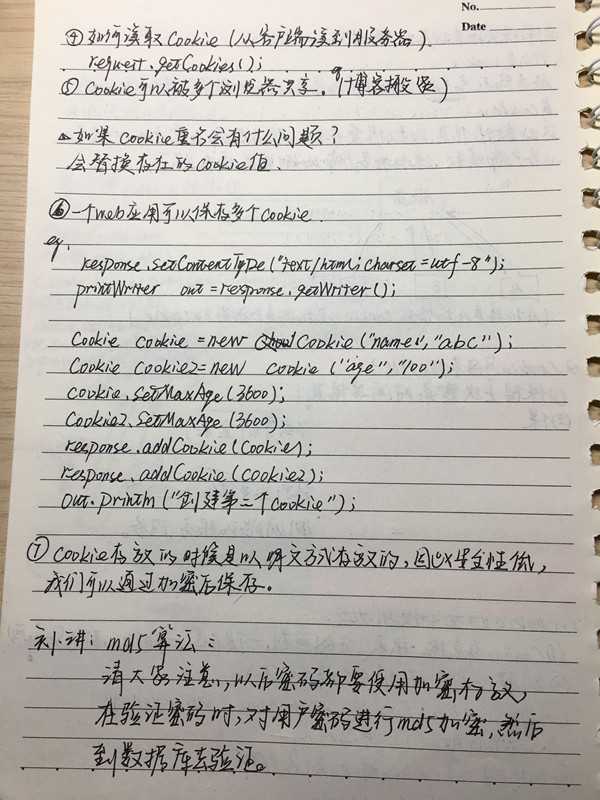 No.
Date
④如何读取Cookie(从客户端读到服务器)
request.getCookies();
⑤Cookie可以被多个浏览器共享。(博客搬强)
△如果cookie重名会有什么问题?
会替换存在的Cookie值.
⑥一个web应用可以保存多个Cookie.
eg.
response.setContentType("text/html;charset=utf-8");
printWriter out=response.getWriter();
Cookie cookie=new Cookie("name","abc");
Cookie cookie2=new cookie("age","100");
cookie.setMaxAge(3600);
Cookie2.SetMaxAge(3600);
response.addCookie(Cookie);
response.addCookie(cookie2);
out.println("创建第二个cookie");
⑦Cookie存放的时候是以明文方式存放的,因此安全性低,
我们可以通过加密后保存。
补讲:md5算法:
请大家注意,以后密码都要使用加密存放,
在验证密码时,对用户密码进行md5加密,然后
到数据库去验证。